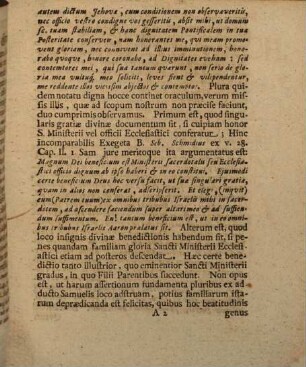 autem dictum Jehovæ, cum conditionem non observaveritis,
nec officio vestro condigne vos gesseritis, absit mihi, ut domum
se. tuam stabiliam, & hanc dignitatem Pontificalem in tua
Posteritate conservem, nam honorantes me, qui meam promo-
vent gloriam, nec connivent ad illius imminutionem, hono-
rabo quoque, honore coronabo, ad Dignitates evebam: sed
contemtores mei, qui sua tantum quærunt, non seria de glo-
ria mea voluti, mea soliciti, leves fient & vilipendentur,
me reddente illos viciſſim abjectos & contemtos. Plura qui-
dem notatu digna hocce continet oraculum, verum miſ-
ſis illis, quæ ad ſcopum noſtrum non præciſe faciunt,
duo cumprimis obſervamus. Primum eſt, quod ſingu-
laris gratiæ divinæ documentum ſit, ſi cuipiam honor
S. Miniſterii vel officii Eccleſiaſtici conferatur; Hinc
incomparabilis Exegeta B. Seb. Schmidius ex v. 28.
Cap. II. 1 Sam jure meritoque ita argumentatus eſt:
Magnum Dei beneficium eſt Miniſteris ſacerdotalis ſeu Eccleſia-
ſtici officio dignum ab ipſo haberi & in eo conſtitui. Ejusmodi
certe beneficium Deus hac verſu facit, ut ſua ſingulari gratia,
quam in alios non conferat, adſcripſerit. Et elegi (inquit)
eum (Patrem tuum) ex omnibus tribubus Iſraëlis mihi in ſacer-
dotem, ad aſcendere faciendum ſuper altari meo & ad ſuffien-
dum ſuffimentum. En! tantum beneficium eſt, ut in omni-
bus tribubus Iſraelis Aaron prælatus ſit. Alterum eſt, quod
loco inſignis divinæ benedictionis habendum ſit, ſi pe-
nes quandam familiam gloria Sancti Miniſterii Eccleſi-
aſtici etiam ad poſteros deſcendat. Hæc certe bene-
dictio tanto illuſtrior, quo eminentior Sancti Miniſterii
gradus, in quo Filii Parentibus ſuccedunt. Non opus
eſt, ut harum aſſertionum fundamenta pluribus ex ad-
ducto Samuelis loco adſtruam, potius familiarum iſta-
rum deprædicanda eſt felicitas, quibus hoc beatitudinis
A 2 genus